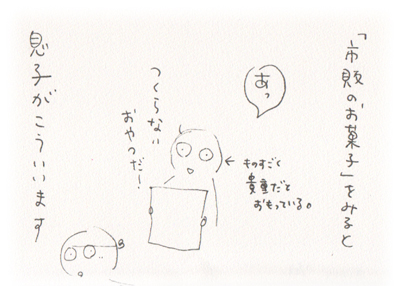 「市販のお菓子」をみると
あっ
←ものすごく
貴重だと
おもっている。
つくらない
おやつだー!
息子がこういいます